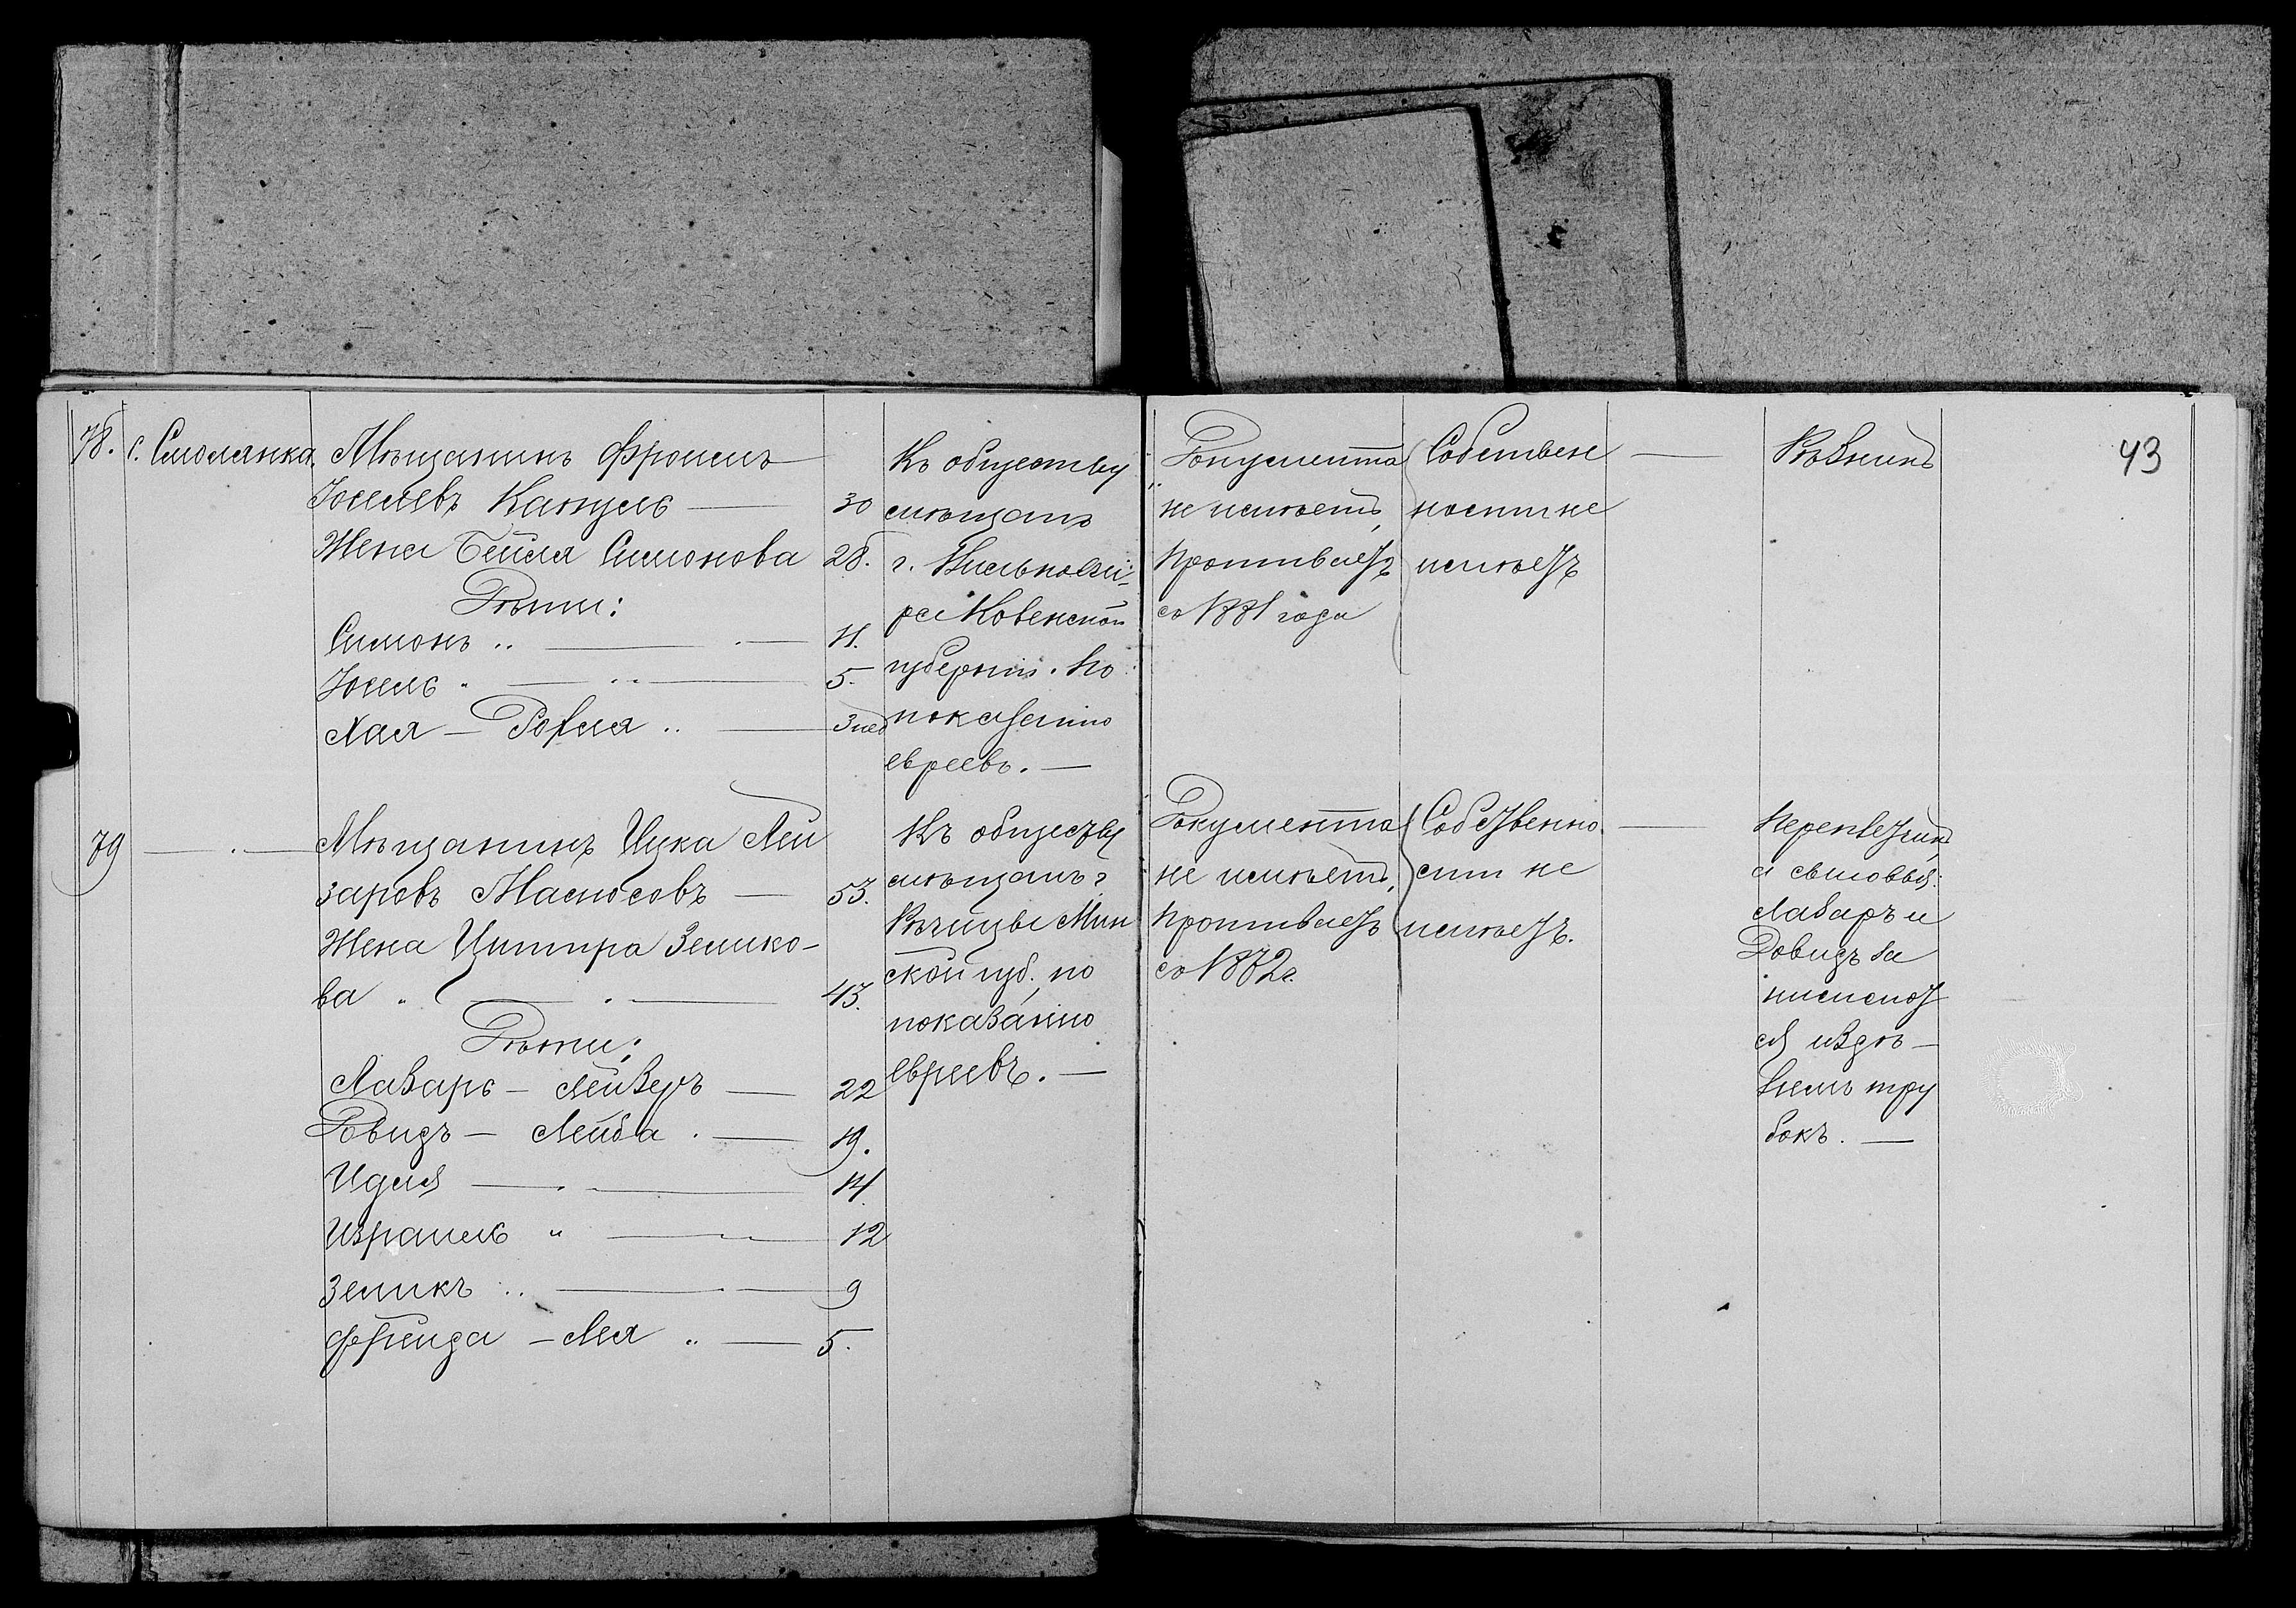 78. с. Смолянка. Мѣщанинъ Фроимъ
Іоселевъ Канцель — 30
Жена Бейля Симонова 28.
Дѣти:
Симонъ — 11.
Іосель — 5.
Хая — Рохля — 3 нед
Къ обществу
мѣщанъ
г. Вилькоми-
ра Ковенской
губерніи. По
показанію
евреевъ. —
Документа
не имѣетъ,
проживаетъ
съ 1881 года
Собствен
ности не
имѣетъ
—
Рѣзникъ
43
79 — Мѣщанинъ Ицка Лей
заровъ Маносовъ — 53.
Жена Циппра Зелико-
ва — 43.
Дѣти:
Лазарь — Лейзеръ — 22
Довидъ — Лейба — 19.
Идля — 14
Израиль — 12
Зеликъ — 9
Фрейда — Лея — 5.
Къ обществу
мѣщанъ г.
Рѣчицы Мин
ской губ., по
показанію
евреевъ. —
Документа
не имѣетъ,
проживаетъ
съ 1872 г.
Собственно
сти не
имѣетъ.
—
Переплетчикъ
а сыновья:
Лазаръ и
Довидъ за
нимают
ся издѣ-
ліемъ тру
бокъ. —